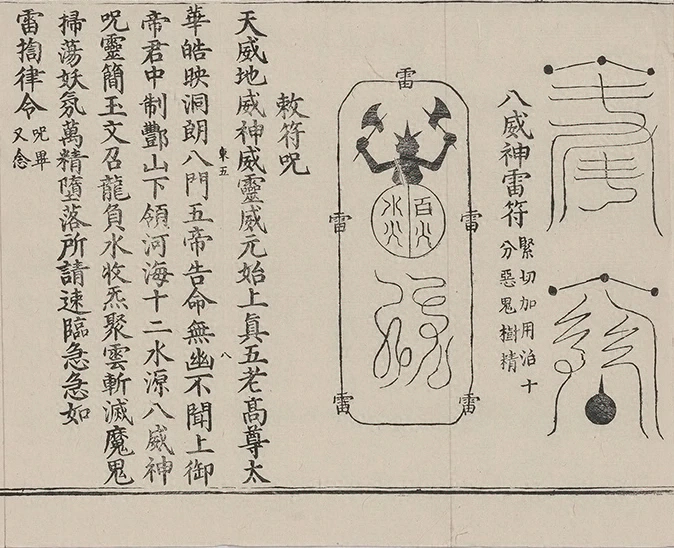 八威神雷符
緊切加用治十
分惡鬼樹精
雷
雷
雷
雷
雷
百火
水火
敕符呪
天威地威神威靈威元始上眞五老髙尊太
華皓映洞朗八門五帝告命無幽不聞上御
東五
八
帝君中制酆山下領河海十二水源八威神
呪靈簡玉文召龍負水收炁聚雲斬滅魔鬼
掃蕩妖氛萬精墮落所請速臨急急如
雷揈律令
呪畢
又念